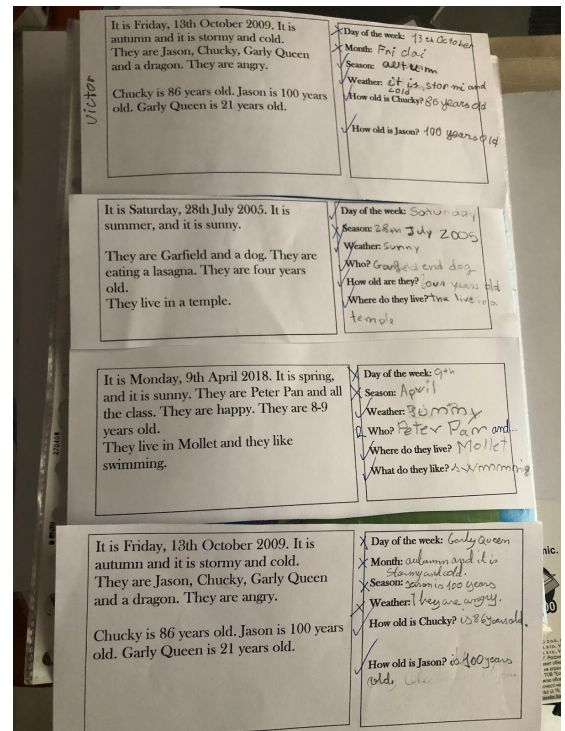 Victor
It is Friday, 13th October 2009. It is
autumn and it is stormy and cold.
They are Jason, Chucky, Garly Queen
and a dragon. They are angry.
Chucky is 86 years old. Jason is 100 years
old. Garly Queen is 21 years old.
Day of the week: 13th October
Month: Fri dai
Season: autum
Weather: it is stor mi and
cold
How old is Chucky? 86 years old
How old is Jason? 100 years old
It is Saturday, 28th July 2005. It is
summer, and it is sunny.
They are Garfield and a dog. They are
eating a lasagna. They are four years
old.
They live in a temple.
Day of the week: Saturday
Season: 28th July 2005
Weather: Sunny
Who? Garfield end dog
How old are they? four years old
Where do they live? the live in a
temple
It is Monday, 9th April 2018. It is spring,
and it is sunny. They are Peter Pan and all
the class. They are happy. They are 8-9
years old.
They live in Mollet and they like
swimming.
Day of the week: 9th
Season: April
Weather: Summy
Who? Peter Pan and...
Where do they live? Mollet
What do they like? swmmmig
It is Friday, 13th October 2009. It is
autumn and it is stormy and cold.
They are Jason, Chucky, Garly Queen
and a dragon. They are angry.
Chucky is 86 years old. Jason is 100 years
old. Garly Queen is 21 years old.
Day of the week: Garly Queen
Month: autumn and it is
Stormy and cold.
Season: Jason is 100 years
Weather: They are angry.
How old is Chucky? is 86 years old.
How old is Jason? is 100 years
old.
nic.